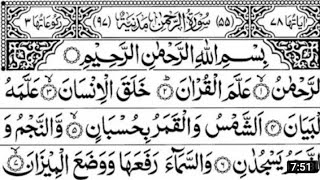 اٰیَاتُهَا ۷۸ (۵۵) سُوْرَةُ الرَّحْمٰنِ مَدَنِیَّةٌ (۹۷) رُكُوْعَاتُهَا ۳
بِسْمِ اللّٰهِ الرَّحْمٰنِ الرَّحِیْمِ
لرَّحْمٰنُ ۱ عَلَّمَ الْقُرْاٰنَ ۲ خَلَقَ الْاِنْسَانَ ۳ عَلَّمَهُ
لْبَیَانَ ۴ اَلشَّمْسُ وَ الْقَمَرُ بِحُسْبَانٍ ۵ وَّ النَّجْمُ وَ
الشَّجَرُ یَسْجُدٰنِ ۶ وَ السَّمَآءَ رَفَعَهَا وَ وَضَعَ الْمِیْزَانَ ۷
7:51